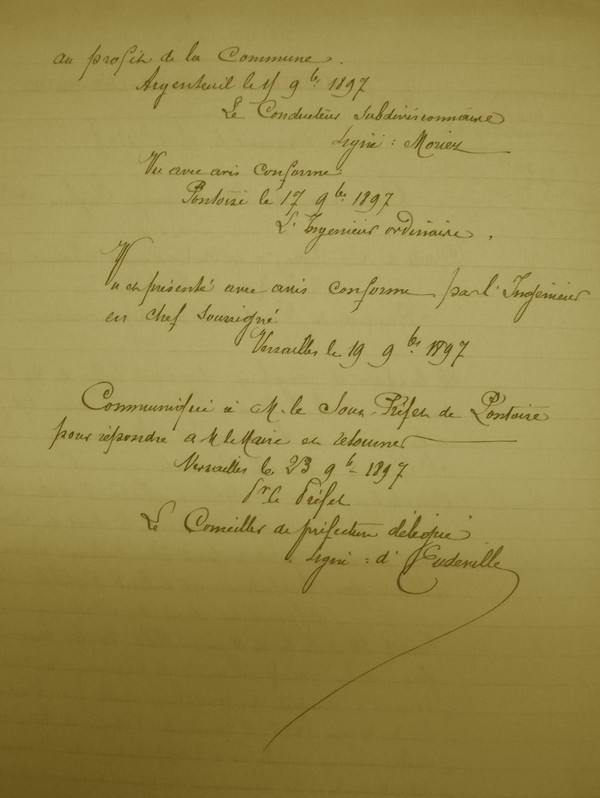 au profit de la Commune.
Argenteuil le 15 9bre 1897
Le Conducteur Subdivisionnaire
Signé : Moriez
Vu avec avis conforme
Pontoise le 17 9bre 1897
L'Ingénieur ordinaire.
Vu et présenté avec avis conforme par l'Ingénieur
en chef soussigné
Versailles le 19 9bre 1897
Communiqué à M. le Sous-Préfet de Pontoise
pour répondre à M le Maire et retourner
Versailles le 23 9bre 1897
Pr le Préfet
Le Conseiller de préfecture délégué
Signé : d'Eudeville